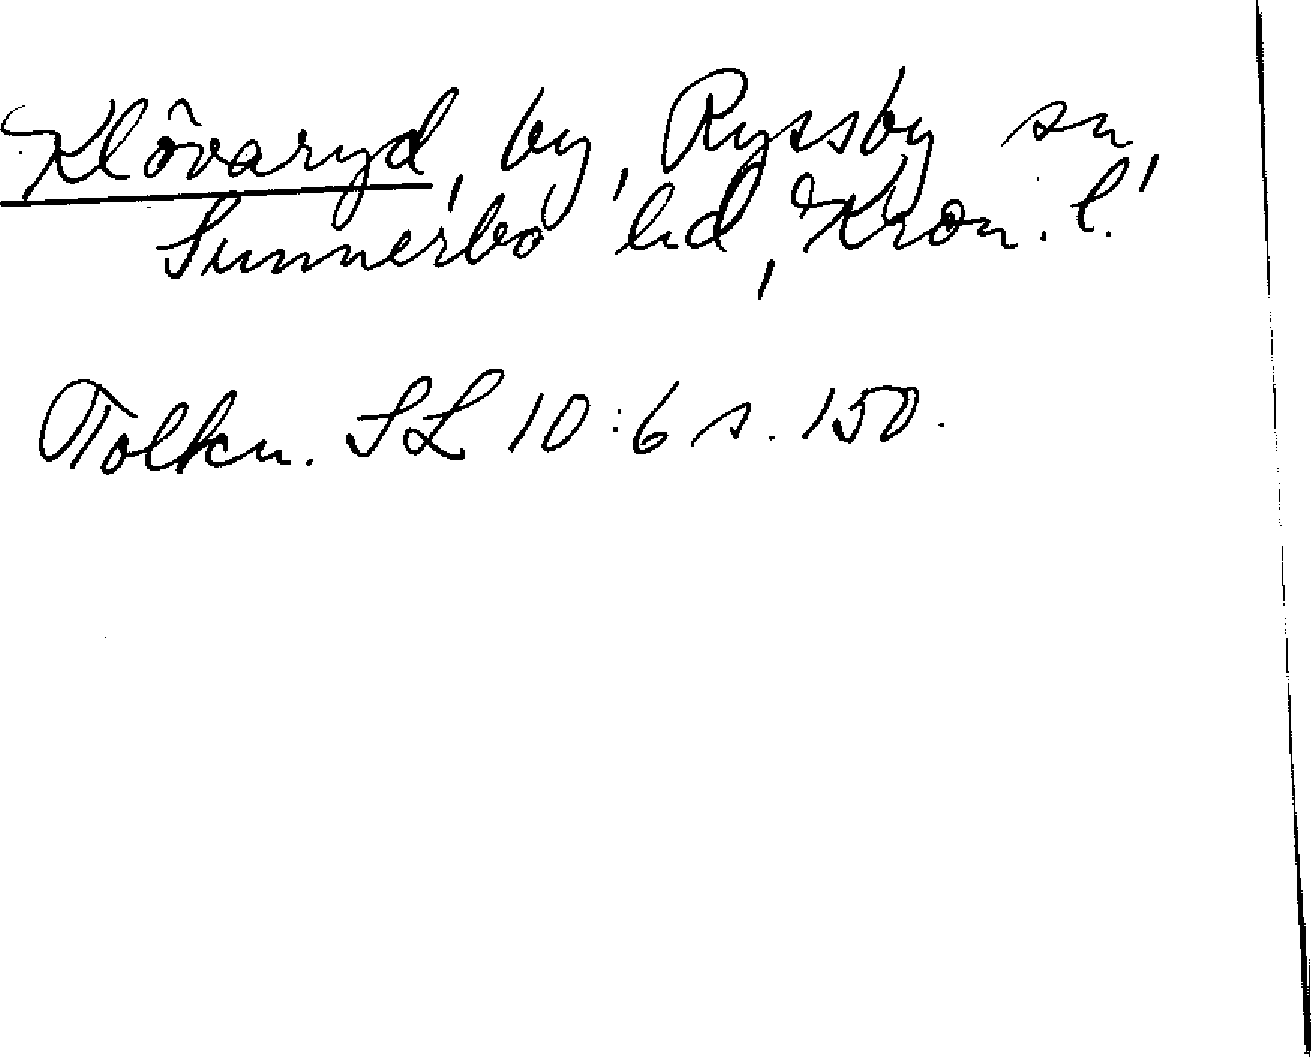 Klövaryd, by, Ryssby sn,
Sunnerbo hd, Kron. l.
Tolkn. SL 10:6 s. 150.